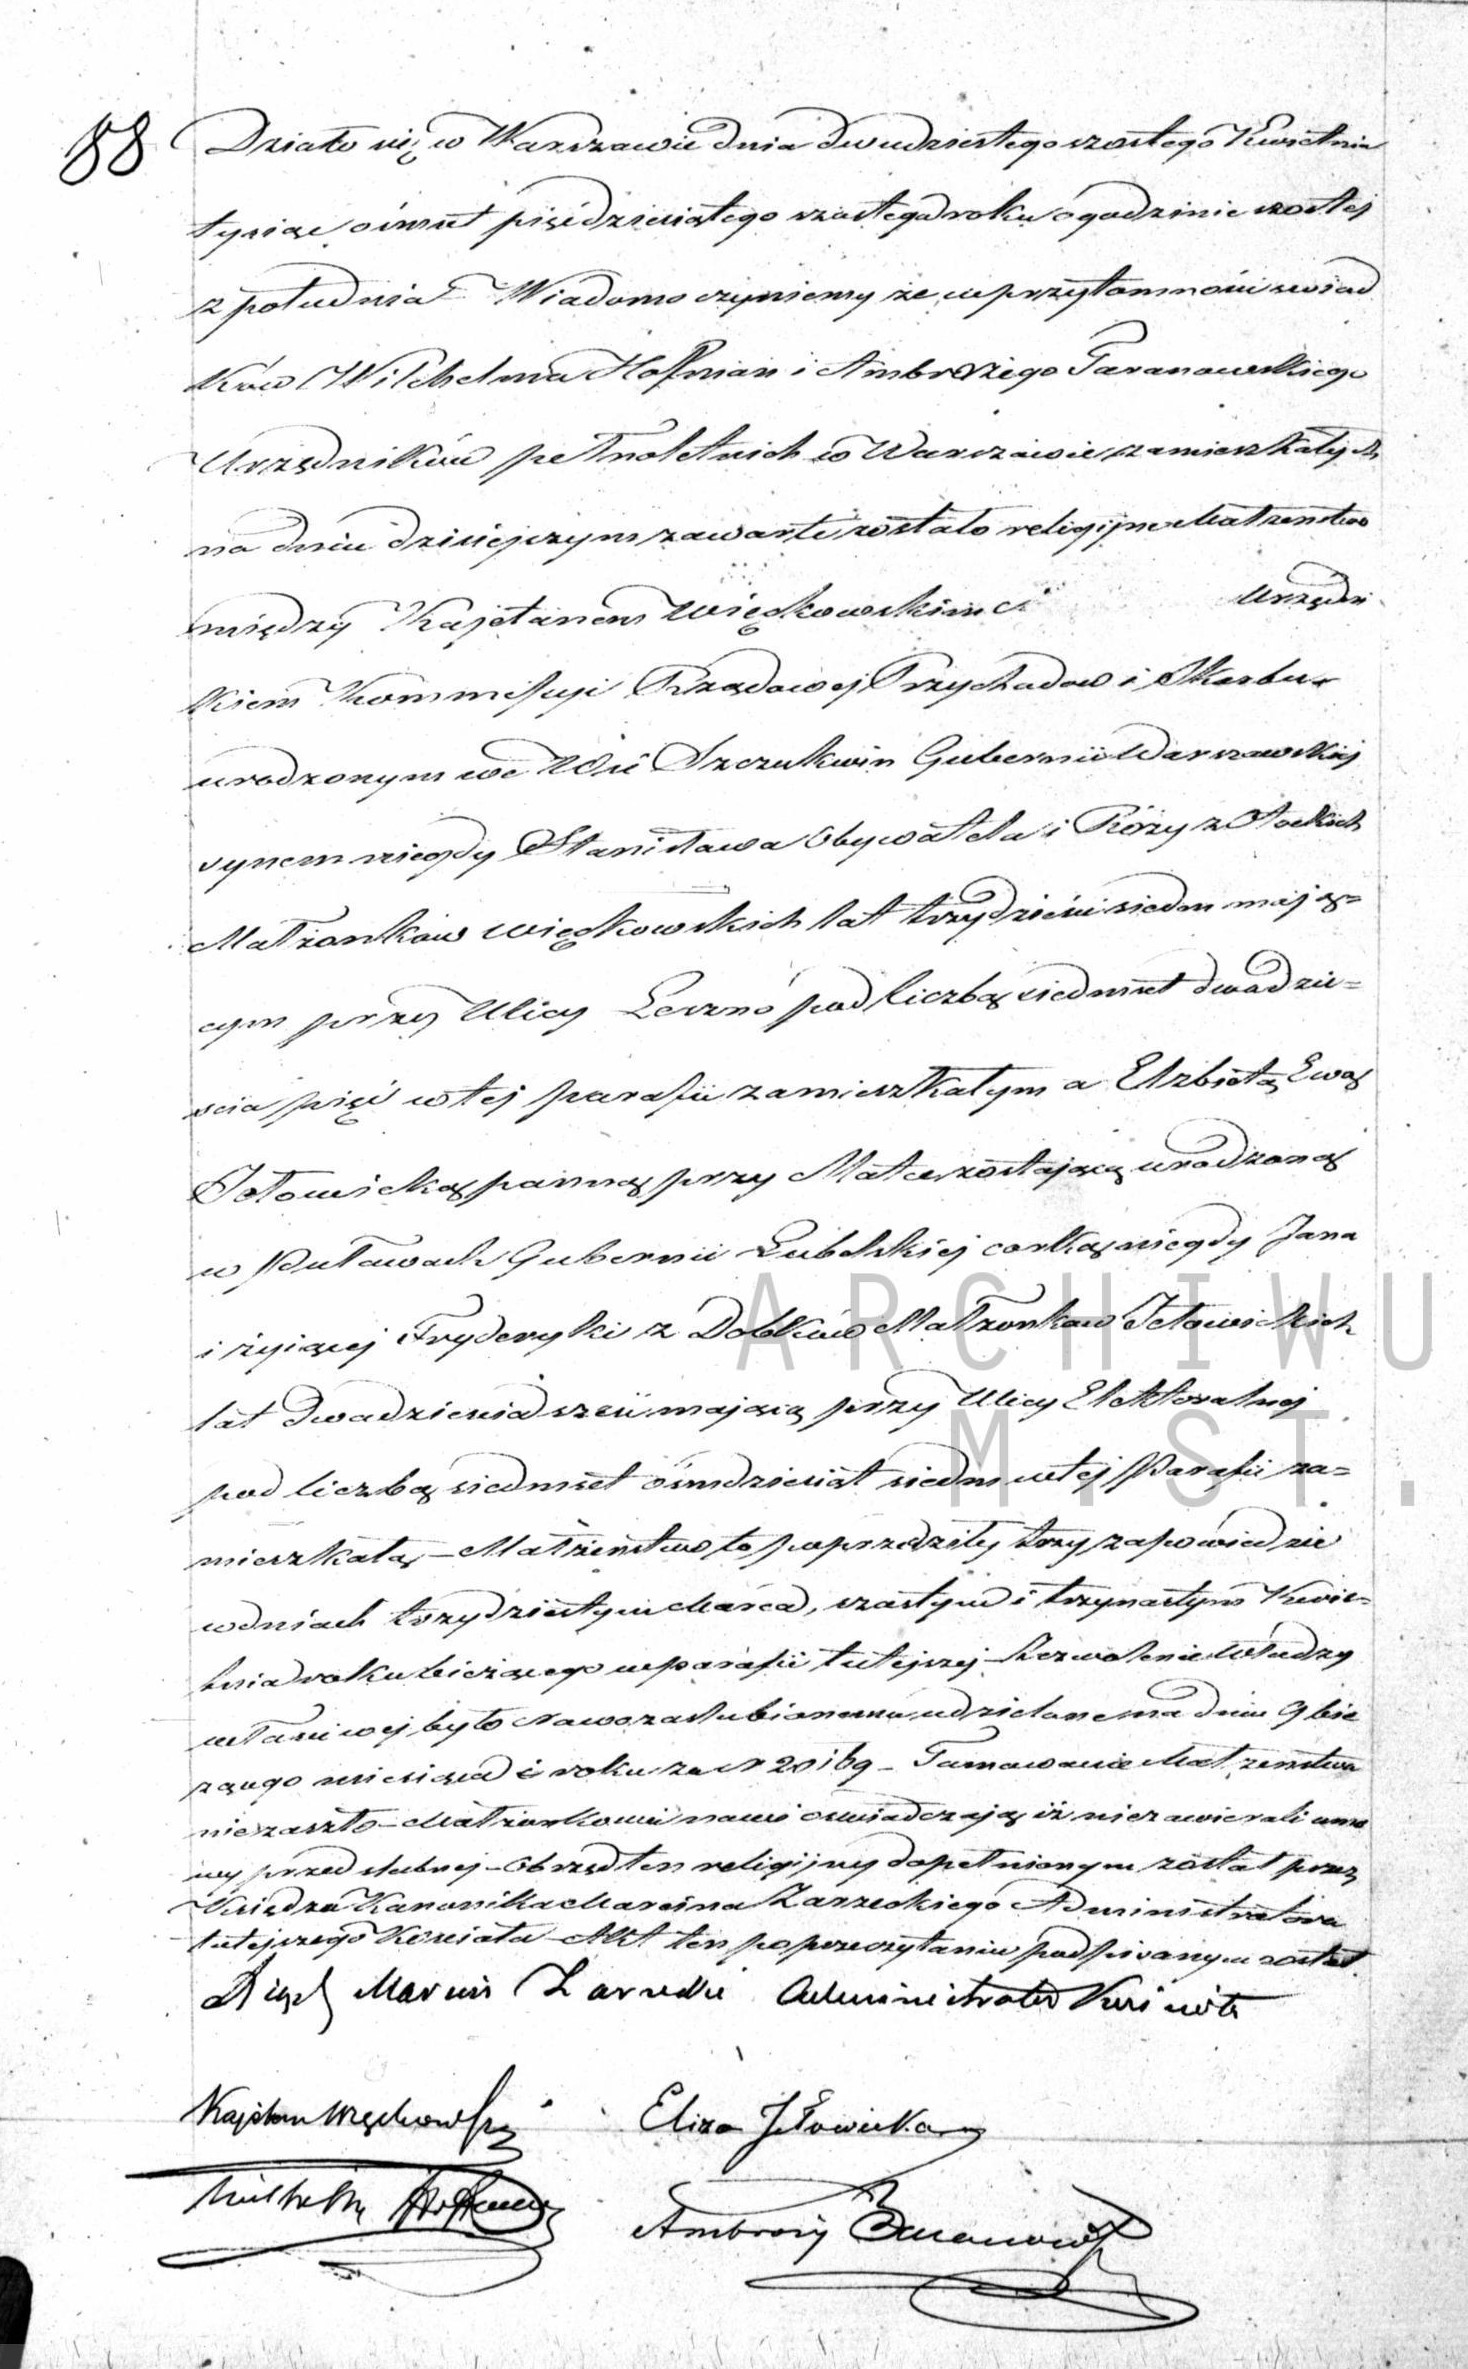 88
Działo się w Warszawie dnia dwudziestego szóstego Kwietnia
tysiąc ośmset pięćdziesiątego szóstego roku o godzinie szóstej
z południa Wiadomo czyniemy że w przytomności świad
ków Wilchelma Hoffman i Ambrożego Taranowskiego
Urzędników pełnoletnich w Warszawie zamieszkałych
na dniu dzisiejszym zawarte zostało religijne Małżenstwo
między Kajetanem Więckowskim Urzędni
kiem Kommissyi Rządowej Przychodow i Skarbu
urodzonym we Wsi Szczukwin Gubernii Warszawskiej
synem niegdy Stanisława Obywatela i Róży z
Małżonków Więckowskich lat trzydzieści siedm mają=
cym przy Ulicy Leszno pod liczbą siedmset dwadzie=
scia pięć w tej parafii zamieszkałym a Elżbietą Ewą
Jełowicką panną przy Matce zostającą urodzoną
w Puławach Gubernii Lubelskiej corką niegdy Jana
i żyjącej Fryderyki z Małżonkow Jełowickich
lat dwadzieścia sześć mającą przy Ulicy Elektoralnej
pod liczbą siedmset ośmdziesiąt siedm w tej Parafii za=
mieszkałą – Małżeństwo to poprzedziły trzy zapowiedzie
w dniach trzydziestym Marca, szóstym i trzynastym Kwie=
tnia roku bieżącego w parafii tutejszej Zezwolenie Władzy
właściwej było Nowozaslubionemu udzielone na dniu 9 bie
żącego miesiąca i roku za N 20169 – Tamowanie Małżenstwa
nie zaszło – Małżonkowie nowi oswiadczają iż nie zawierali umo
wy przedslubnej – Obrzęd ten religijny dopełnionym został przez
Księdza Kanonika Marcina Zarzeckiego Administratora
tutejszego Kościoła – Akt ten po przeczytaniu podpisanym został
Xiądz Marcin Zarzecki Administrator Kościoła
Kajetan Więckowski Eliza Jełowicka
Wilhelm Hoffman Ambroży
ARCHIWU
M . S T .